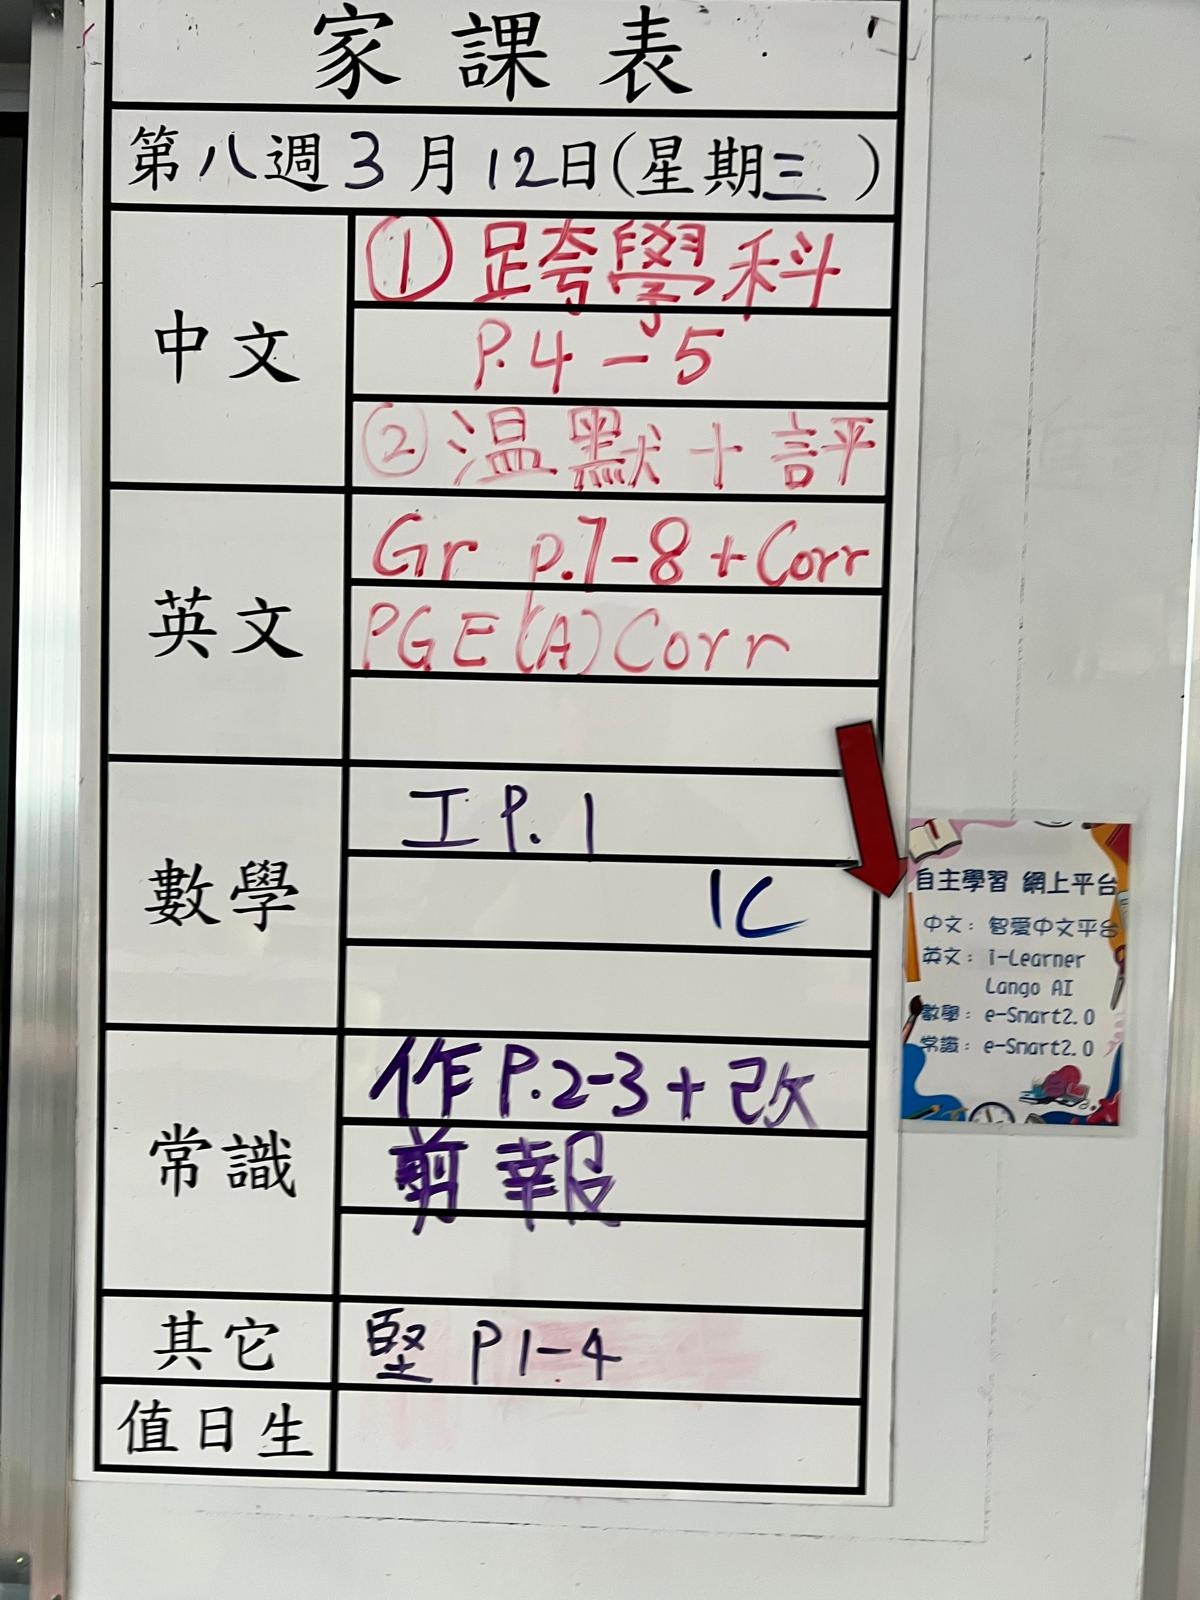 家課表
第八週3月12日(星期三)
中文
① 跨學科
P.4-5
② 溫默+評
英文
Gr p.7-8+Corr
PGE(A)Corr
數學
工P.1
1C
常識
作P.2-3+改
剪報
其它
堅 P1-4
值日生
自主學習 網上平台
中文：智愛中文平台
英文：i-Learner
Lango AI
數學：e-Smart2.0
常識：e-Smart2.0